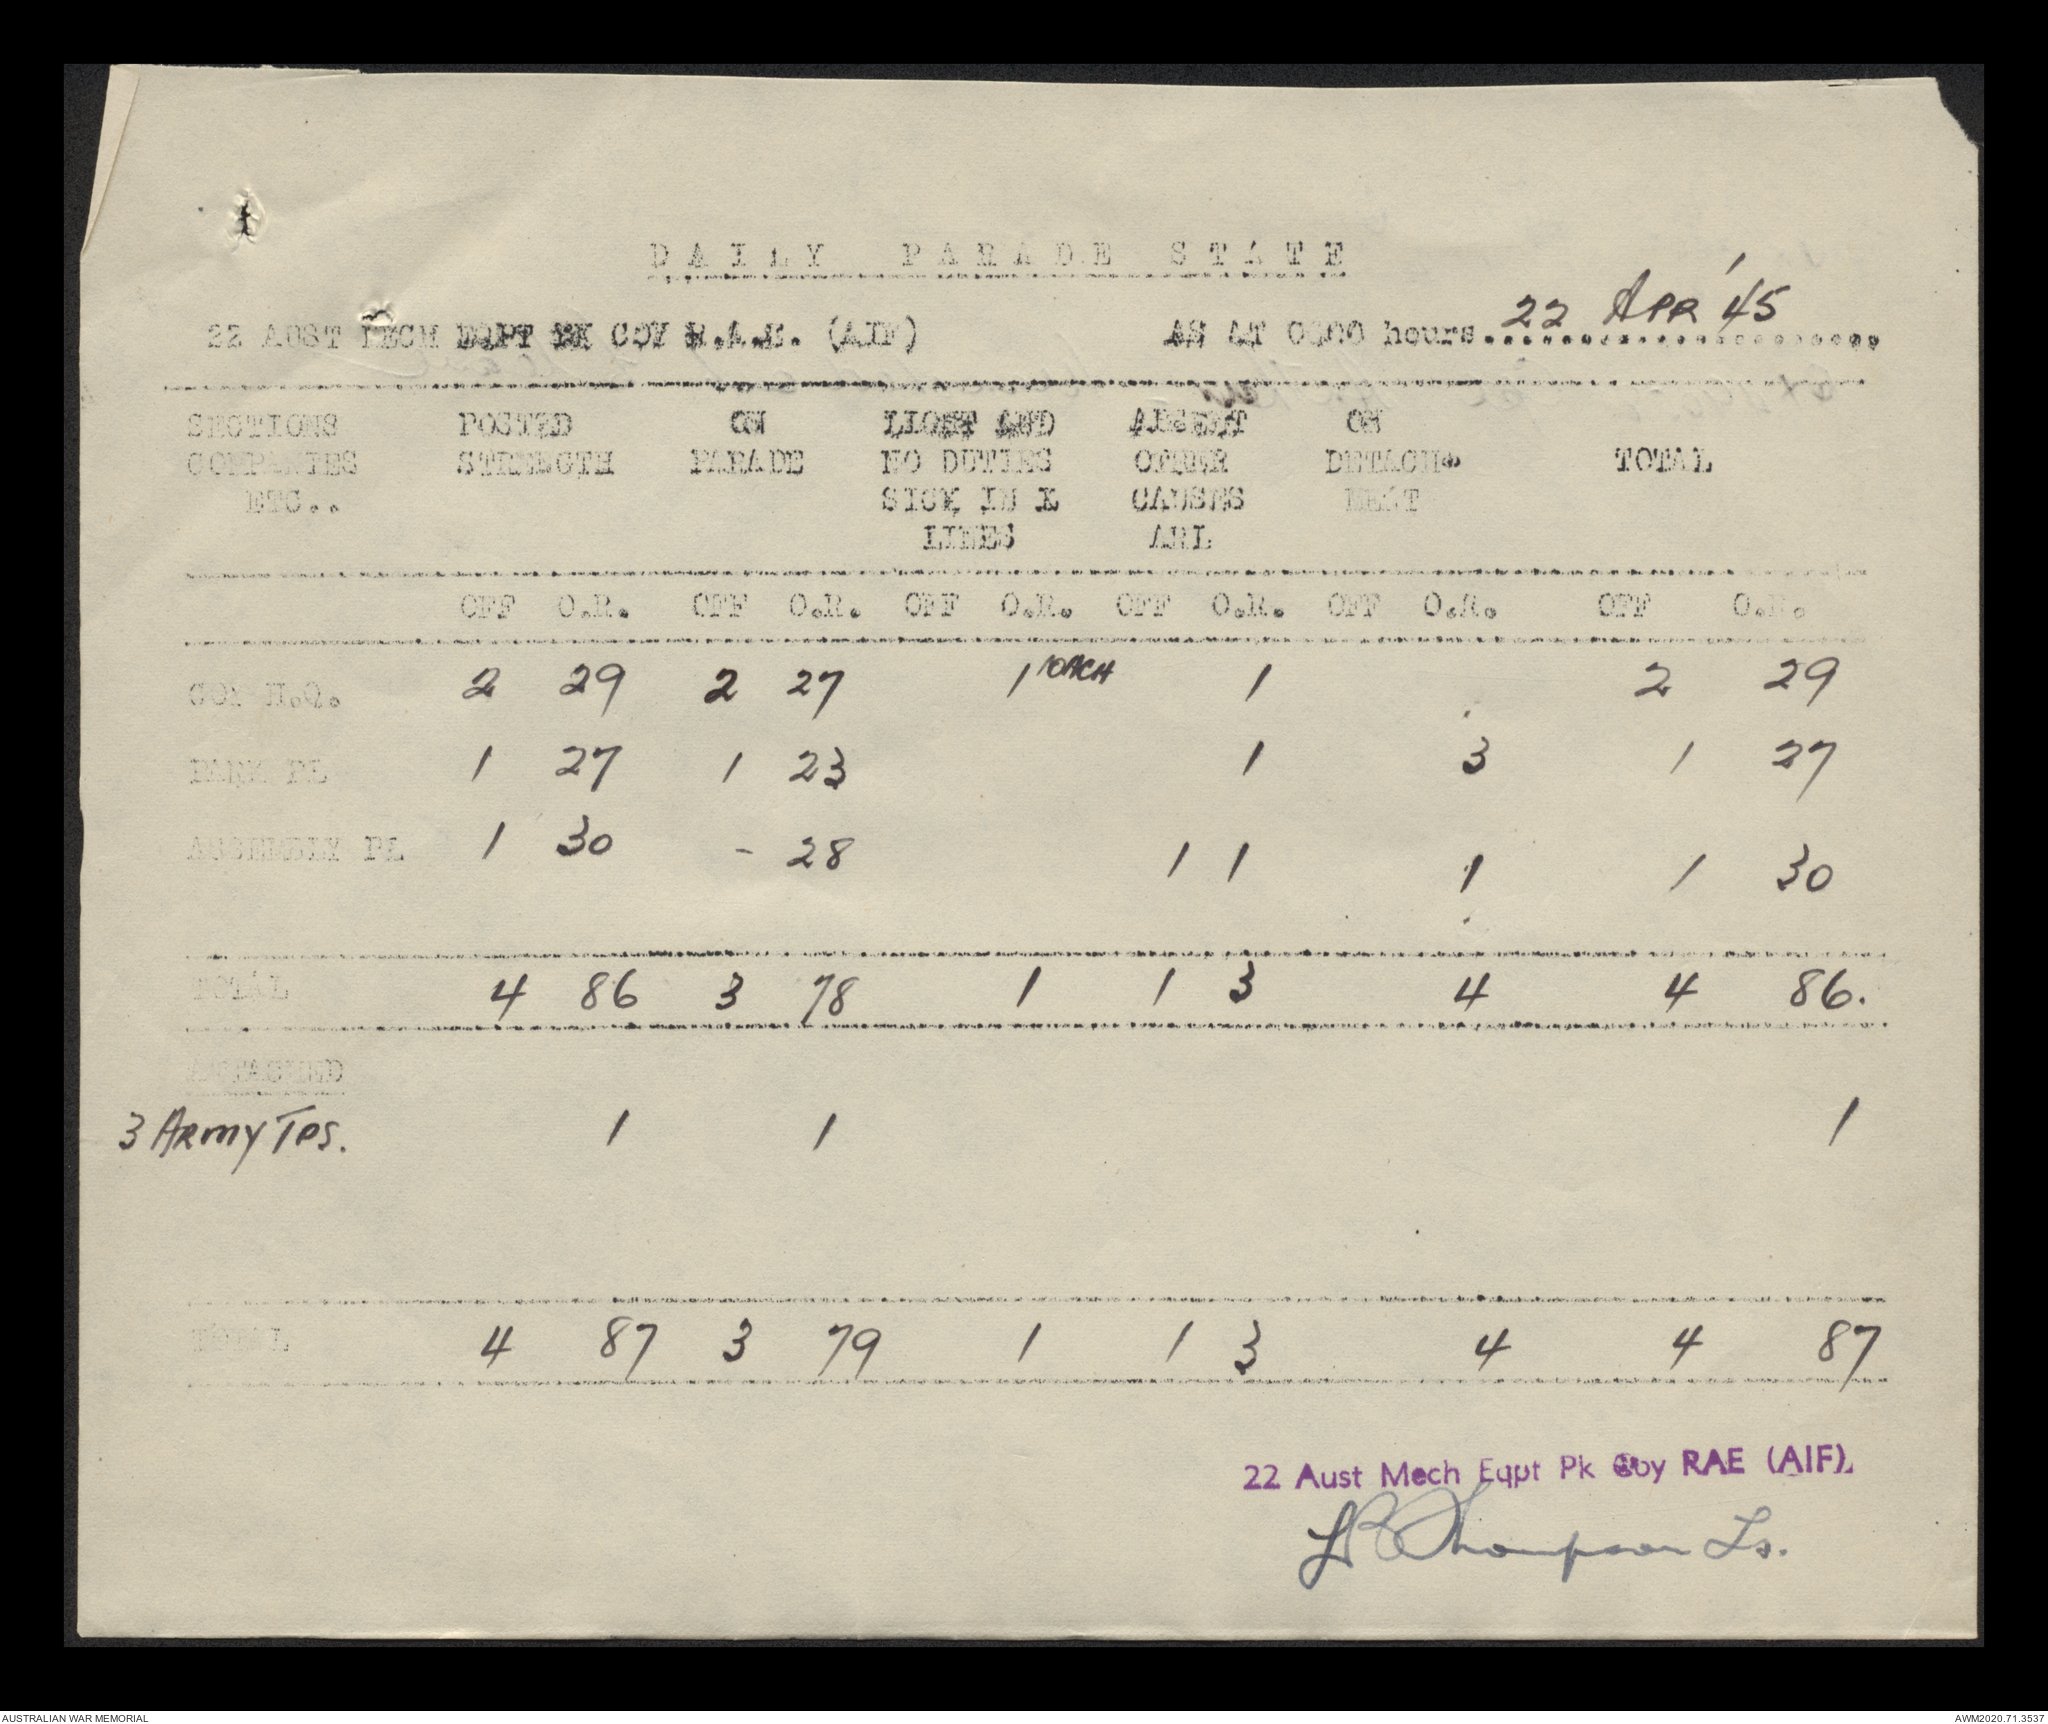 DAILY PARADE STATE
22 AUST MECH EQPT PK COY R.A.E. (AIF) AS AT 0600 hours 22 APR '45
SECTIONS POSTED ON LIGHT AND ABSENT ON
COMPANIES STRENGTH PARADE NO DUTIES OTHER DETACH- TOTAL
ETC.. SICK IN X CAUSES MENT
LINES ARL
OFF O.R. OFF O.R. OFF O.R. OFF O.R. OFF O.R. OFF O.R.
COY H.Q. 2 29 2 27 1 1 2 29
PARK PL 1 27 1 23 1 3 1 27
ASSEMBLY PL 1 30 - 28 1 1 1 1 30
TOTAL 4 86 3 78 1 1 3 4 4 86.
ATTACHED
3 ARMY TPS. 1 1 1
TOTAL 4 87 3 79 1 1 3 4 4 87
22 Aust Mech Eqpt Pk Coy RAE (AIF).
Thompson Lt.
AUSTRALIAN WAR MEMORIAL AWM2020.71.3537